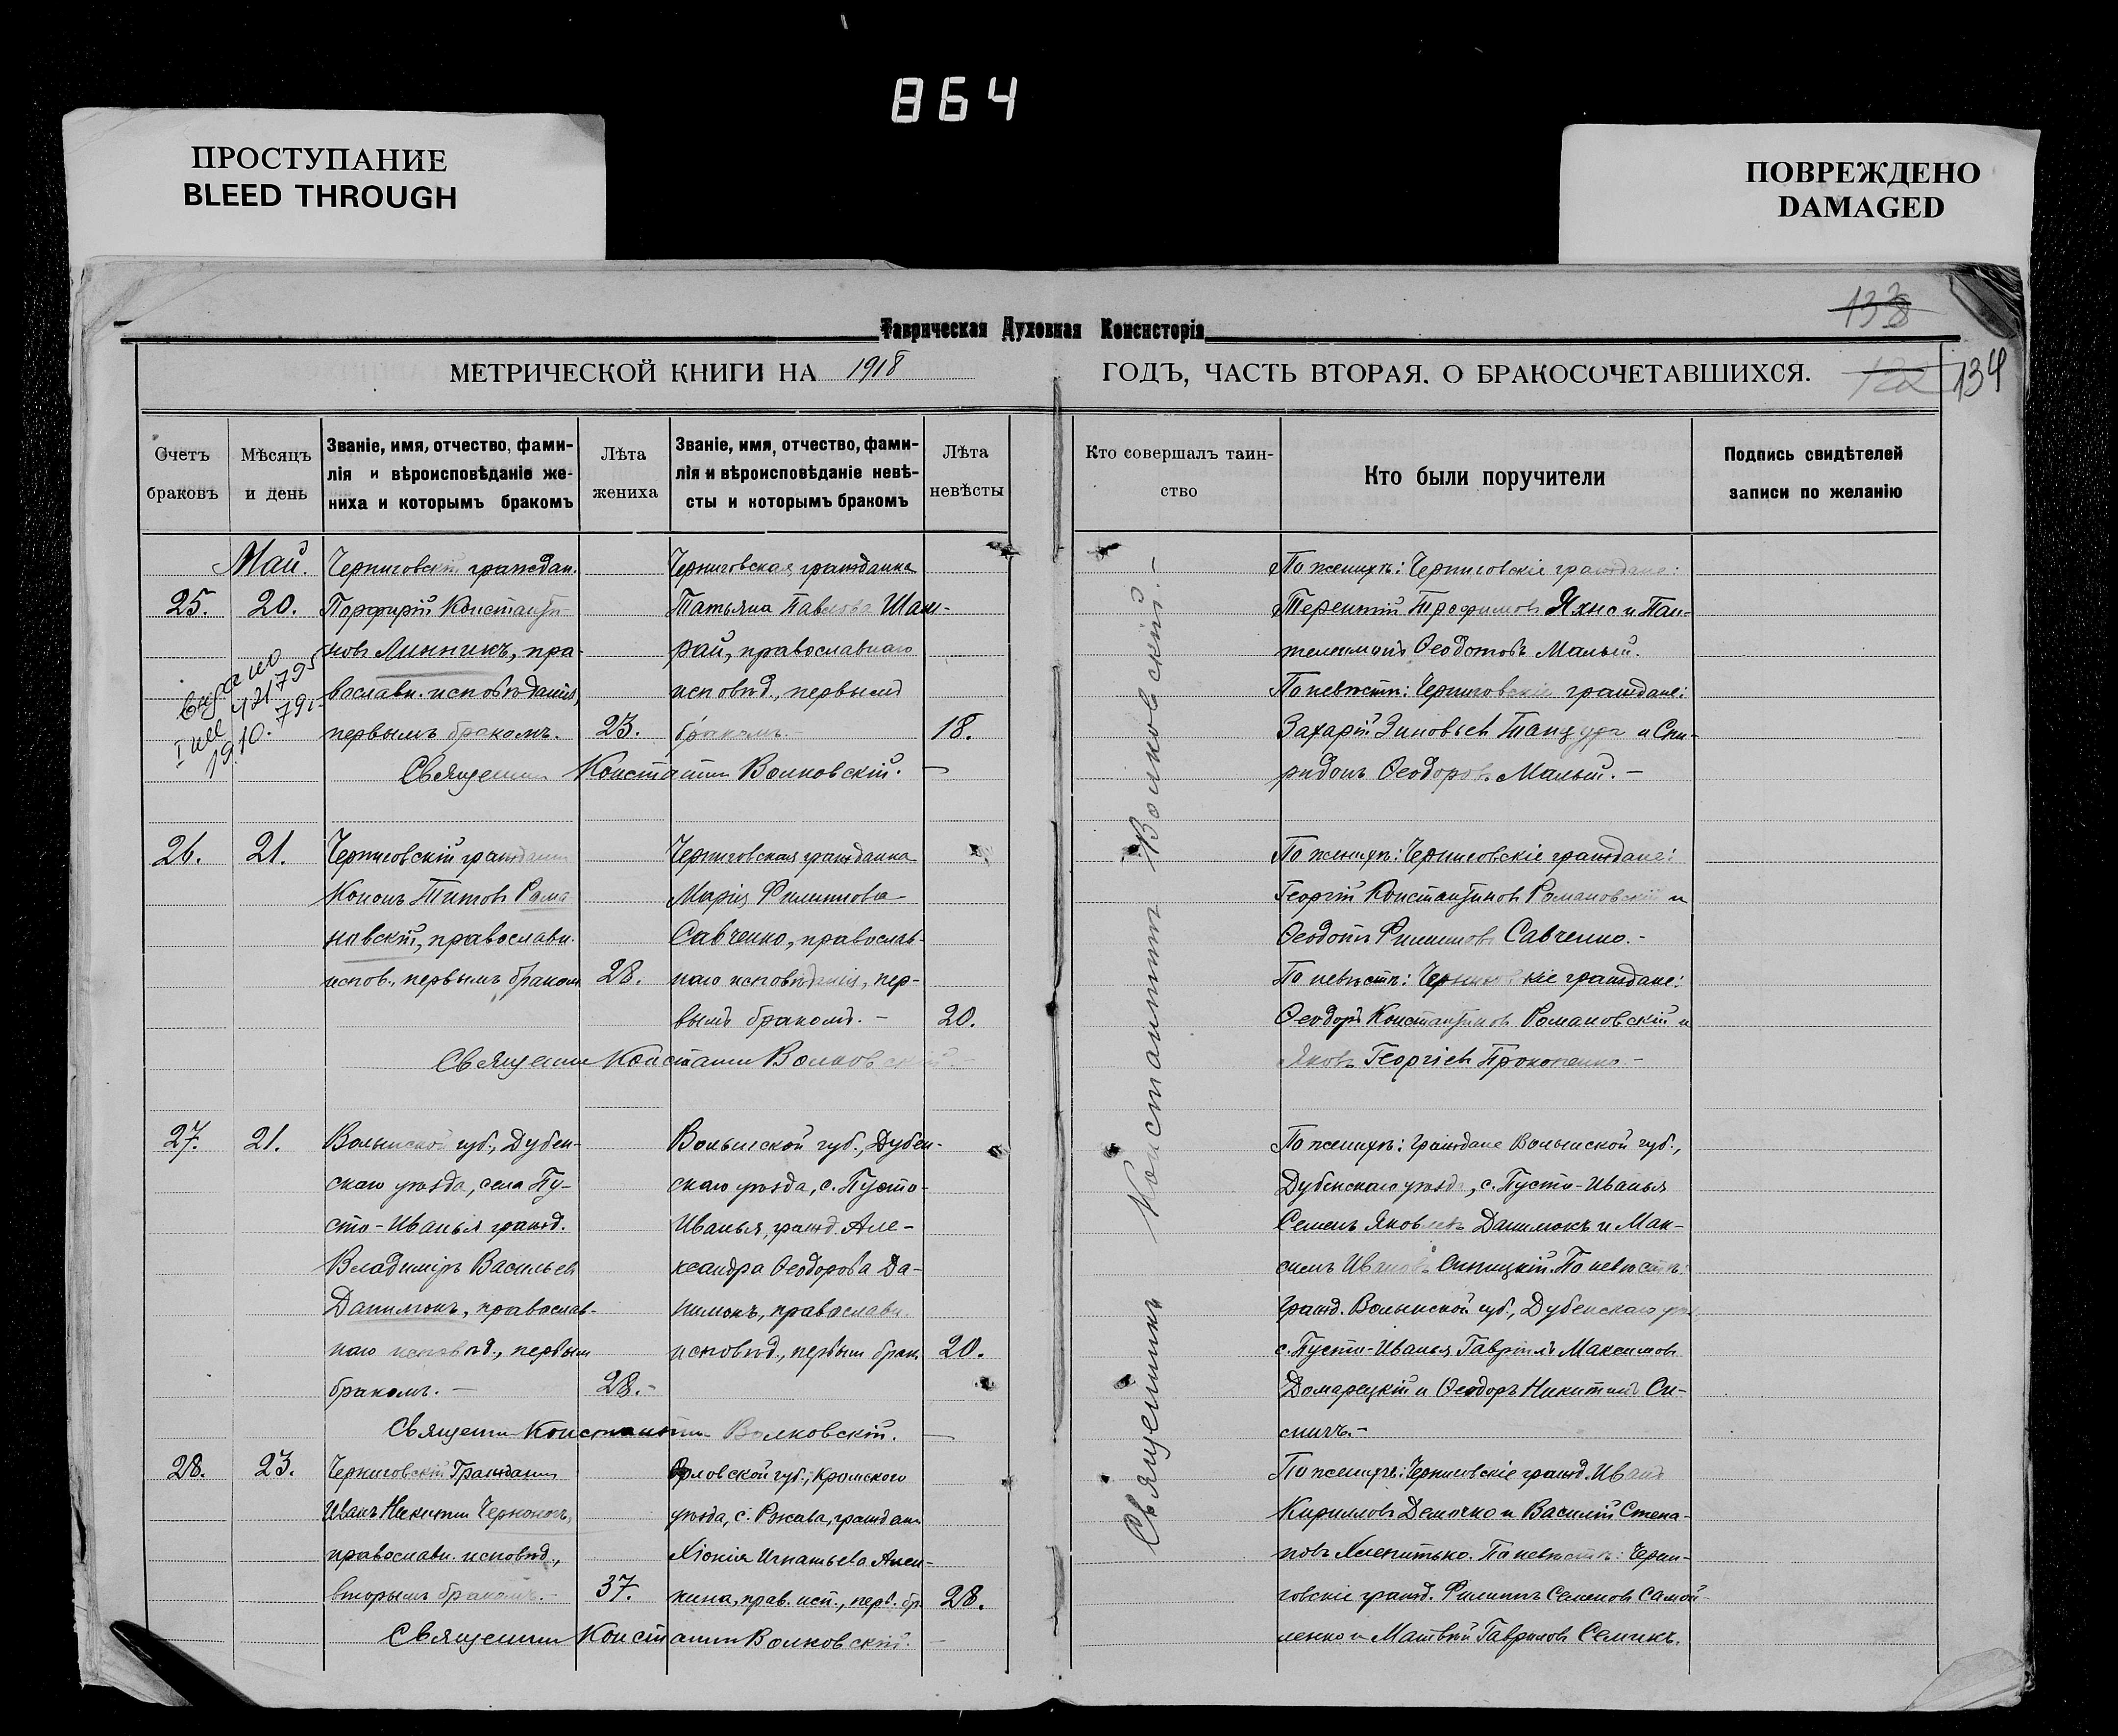 864
ПРОСТУПАНИЕ
BLEED THROUGH
ПОВРЕЖДЕНО
DAMAGED
133
Таврическая Духовная Консисторія
МЕТРИЧЕСКОЙ КНИГИ НА 1918
ГОДЪ, ЧАСТЬ ВТОРАЯ. О БРАКОСОЧЕТАВШИХСЯ.
134
Счетъ
браковъ
Мѣсяцъ
и день
Званіе, имя, отчество, фами-
лія и вѣроисповѣданіе же-
ниха и которымъ бракомъ
Лѣта
жениха
Званіе, имя, отчество, фами-
лія и вѣроисповѣданіе невѣ-
сты и которымъ бракомъ
Лѣта
невѣсты
Кто совершалъ таин-
ство
Кто были поручители
Подпись свидѣтелей
записи по желанію
Май.
25.
20.
Черниговскій граждан.
Порфирій Константи-
новъ Линникъ, пра-
вославн. исповѣданія,
первымъ бракомъ.
23.
Черниговская гражданка
Татьяна Павлова Шам-
рай, православнаго
исповѣд., первымъ
бракомъ.-
18.
Священникъ Константинъ Волковскій. -
По женихѣ: Черниговскіе граждане:
Терентій Трофимовъ Яхно и Пан-
телеимонъ Ѳеодотовъ Малый.
По невѣстѣ: Черниговскіе граждане:
Захарій Зиновьевъ Танцура и Спи-
ридонъ Ѳеодоровъ Малый. -
26.
21.
Черниговскій гражданин
Кононъ Титовъ Рома
новскій, православн.
испов., первымъ браком
28.
Черниговская гражданка
Марія Филиппова
Савченко, православ-
наго исповѣданія, пер-
вымъ бракомъ. -
20.
Священник Констатин Волковскій. -
По женихѣ: Черниговскіе граждане:
Георгій Константиновъ Романовскій и
Ѳеодотъ Филипповъ Савченко. -
По невѣстѣ: Черниговскіе граждане:
Ѳеодоръ Константиновъ Романовскій и
Яковъ Георгіевъ Прокопенко. -
27.
21.
Волынской губ., Дубен-
скаго уѣзда, села Пу-
сто-Иванья гражд.
Владиміръ Васильевъ
Данилюкъ, православ-
наго исповѣд., первым
бракомъ. -
28. -
Волынской губ., Дубен-
скаго уѣзда, с. Пусто-
Иванья, гражд. Але-
ксандра Ѳеодорова Да-
нилюкъ, православн.
исповѣд., первым брак.
20.
Священник Константин Волковскій. -
По женихѣ: граждане Волынской губ.,
Дубенскаго уѣзда, с. Пусто-Иванья
Семенъ Яковлевъ Данилюкъ и Мак-
симъ Ивановъ Синицкій. По невѣстѣ:
гражд. Волынской губ., Дубенскаго уѣз.
с. Пусто-Иванья Гавріилъ Максимовъ
Домарецкій и Ѳеодоръ Никитинъ
28.
23.
Черниговскій Гражданин
Иванъ Никитин
православн. исповѣд.,
вторымъ бракомъ. -
37.
Орловской губ., Кромского
уѣзда, с. Ржава, граждан.
Хіонія Игнатьева Алеш-
кина, прав. исп., перв. бр.
28.
Священник Констатин Волковскій. -
По женихѣ: Черниговскіе гражд. Иванъ
Кирилловъ Демочко и Василій Степа-
новъ Хлепитько. По невѣстѣ: Черни-
говскіе гражд. Филиппъ Семеновъ Самой-
ленко и Матвѣй Гавриловъ Семикъ.
Священникъ Константинъ Волковскій. -